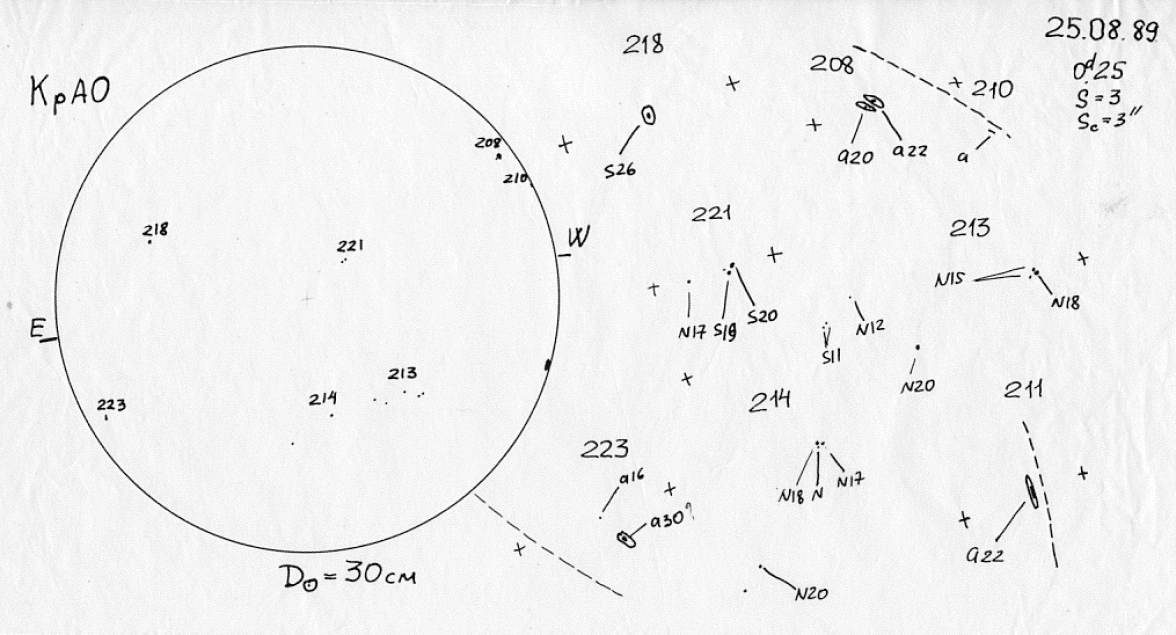 25.08.89
0ᵈ.25
S=3
Sc=3"
КрАО
218
S26
208
210
a20
a22
a
208
210
218
221
W
E
213
214
223
D⊙=30 см
221
N17
S19
S20
213
N15
N18
N12
S11
N20
214
N18
N
N17
N20
211
a22
223
a16
a30?